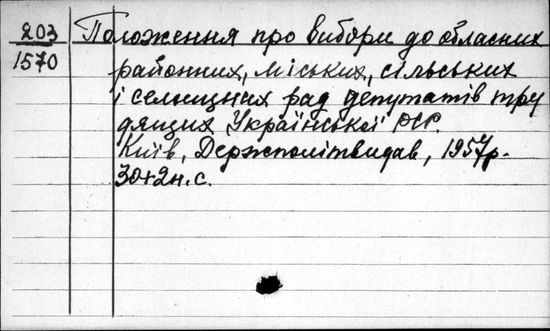 203
1570
Положення про вибори до обласних
районних, міських, сільських
і селищних рад депутатів тру
дящих Української РСР.
Київ, Держполітвидав, 1957р.
30+2н.с.